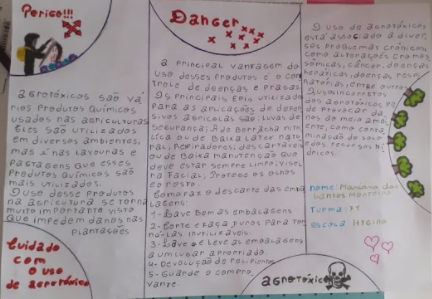 Perigo!!!
agrotóxicos são vá
rios produtos químicos
usados nas agriculturas
Eles são utilizados
em diversos ambientes,
mas é nas lavouras e
pastagens que esses
produtos químicos são
mais utilizados.
O uso desse produtos
na agricultura se torna
muito importante visto
que impedem danos nas
plantações
Cuidado
com o
o uso
de agrotóxico
Danger
a principal vantagem do
uso desses produtos é o con
trole de doenças e pragas
Os principais Epis utilizado
para as aplicações de defen
sivos agrícolas são: Luvas de
segurança: a de borracha nitri
descartáveis
de manutenção que
deve estar sempre limpo
Facial, Protege os olhos
e o rosto.
descarte das emba
lagens
1- Lave bem as embalagens
2- Corte e faça furos para tor
ná-las inutilizáveis.
3- Lave e leve as embalagens
a um lugar apropriado
4- Devolução de recipientes
5- Guarde o compro
vante.
agrotóxico
O uso de agrotóxicos
está associado a diver
sos problemas crônicos,
como alterações cromos
sômicas, câncer, doenças
hepáticas, doenças respi
ratórias, entre outros
dos agrotóxicos po
de provocar da
nos do meio ambie
nte, como conta
minação do solo
e dos recursos hí
dricos.
nome: Mariana dos
Santos
Turma:
Escola: